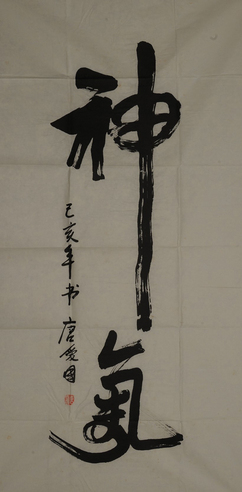 神氣
己亥年书 唐爱国